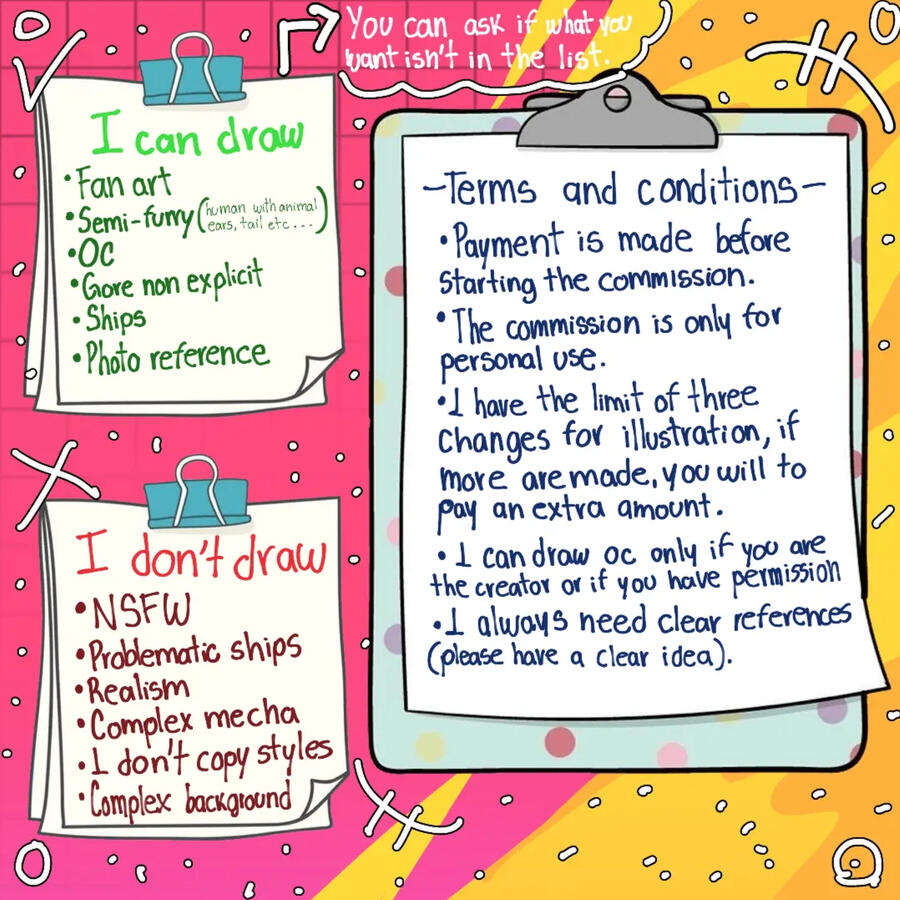 You can ask if what you
want isn't in the list.
I can draw
•Fan art
•Semi-furry (human with animal
ears, tail etc...)
•OC
•Gore non explicit
•Ships
•Photo reference
I don't draw
•NSFW
•Problematic ships
•Realism
•Complex mecha
•I don't copy styles
•Complex background
-Terms and conditions-
•Payment is made before
starting the commission.
•The commission is only for
personal use.
•I have the limit of three
changes for illustration, if
more are made, you will to
pay an extra amount.
•I can draw oc only if you are
the creator or if you have permission
•I always need clear references
(please have a clear idea).